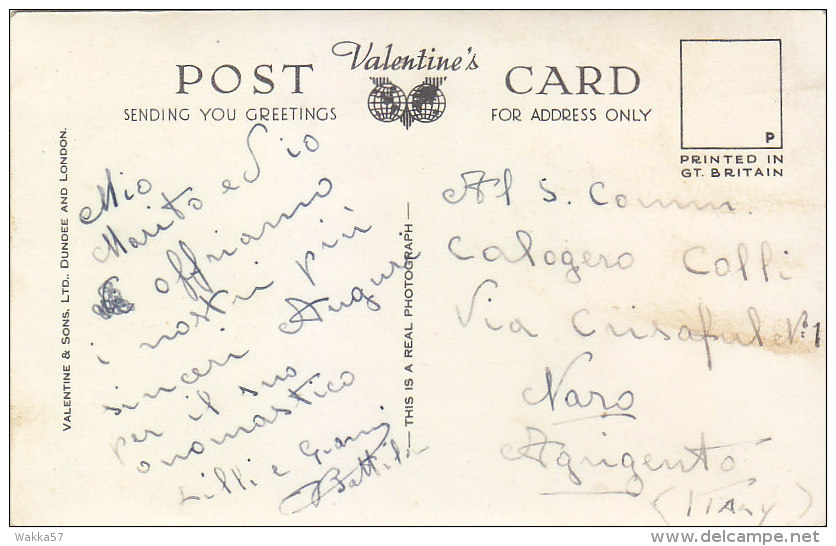 Valentine's
POST CARD
SENDING YOU GREETINGS
FOR ADDRESS ONLY
P
PRINTED IN
GT. BRITAIN
VALENTINE & SONS. LTD., DUNDEE AND LONDON.
THIS IS A REAL PHOTOGRAPH
Mio
Marito ed io
offriamo
i nostri più
sinceri Auguri
per il suo
onomastico
Lilli e Gianni
Al S. Comm.
Calogero Colli
Via Crisafulli N: 1
Naro
Agrigento
(ITALY)
Wakka57
delcampe.net